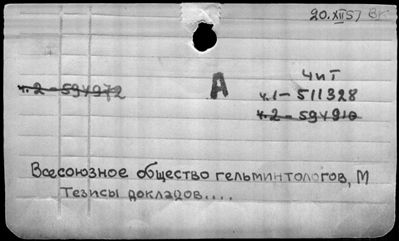 20.XII57 Вг
ч.2-594972
А
Чит
ч.1-511328
ч.2-594910
Всесоюзное общество гельминтологов, М
Тезисы докладов....